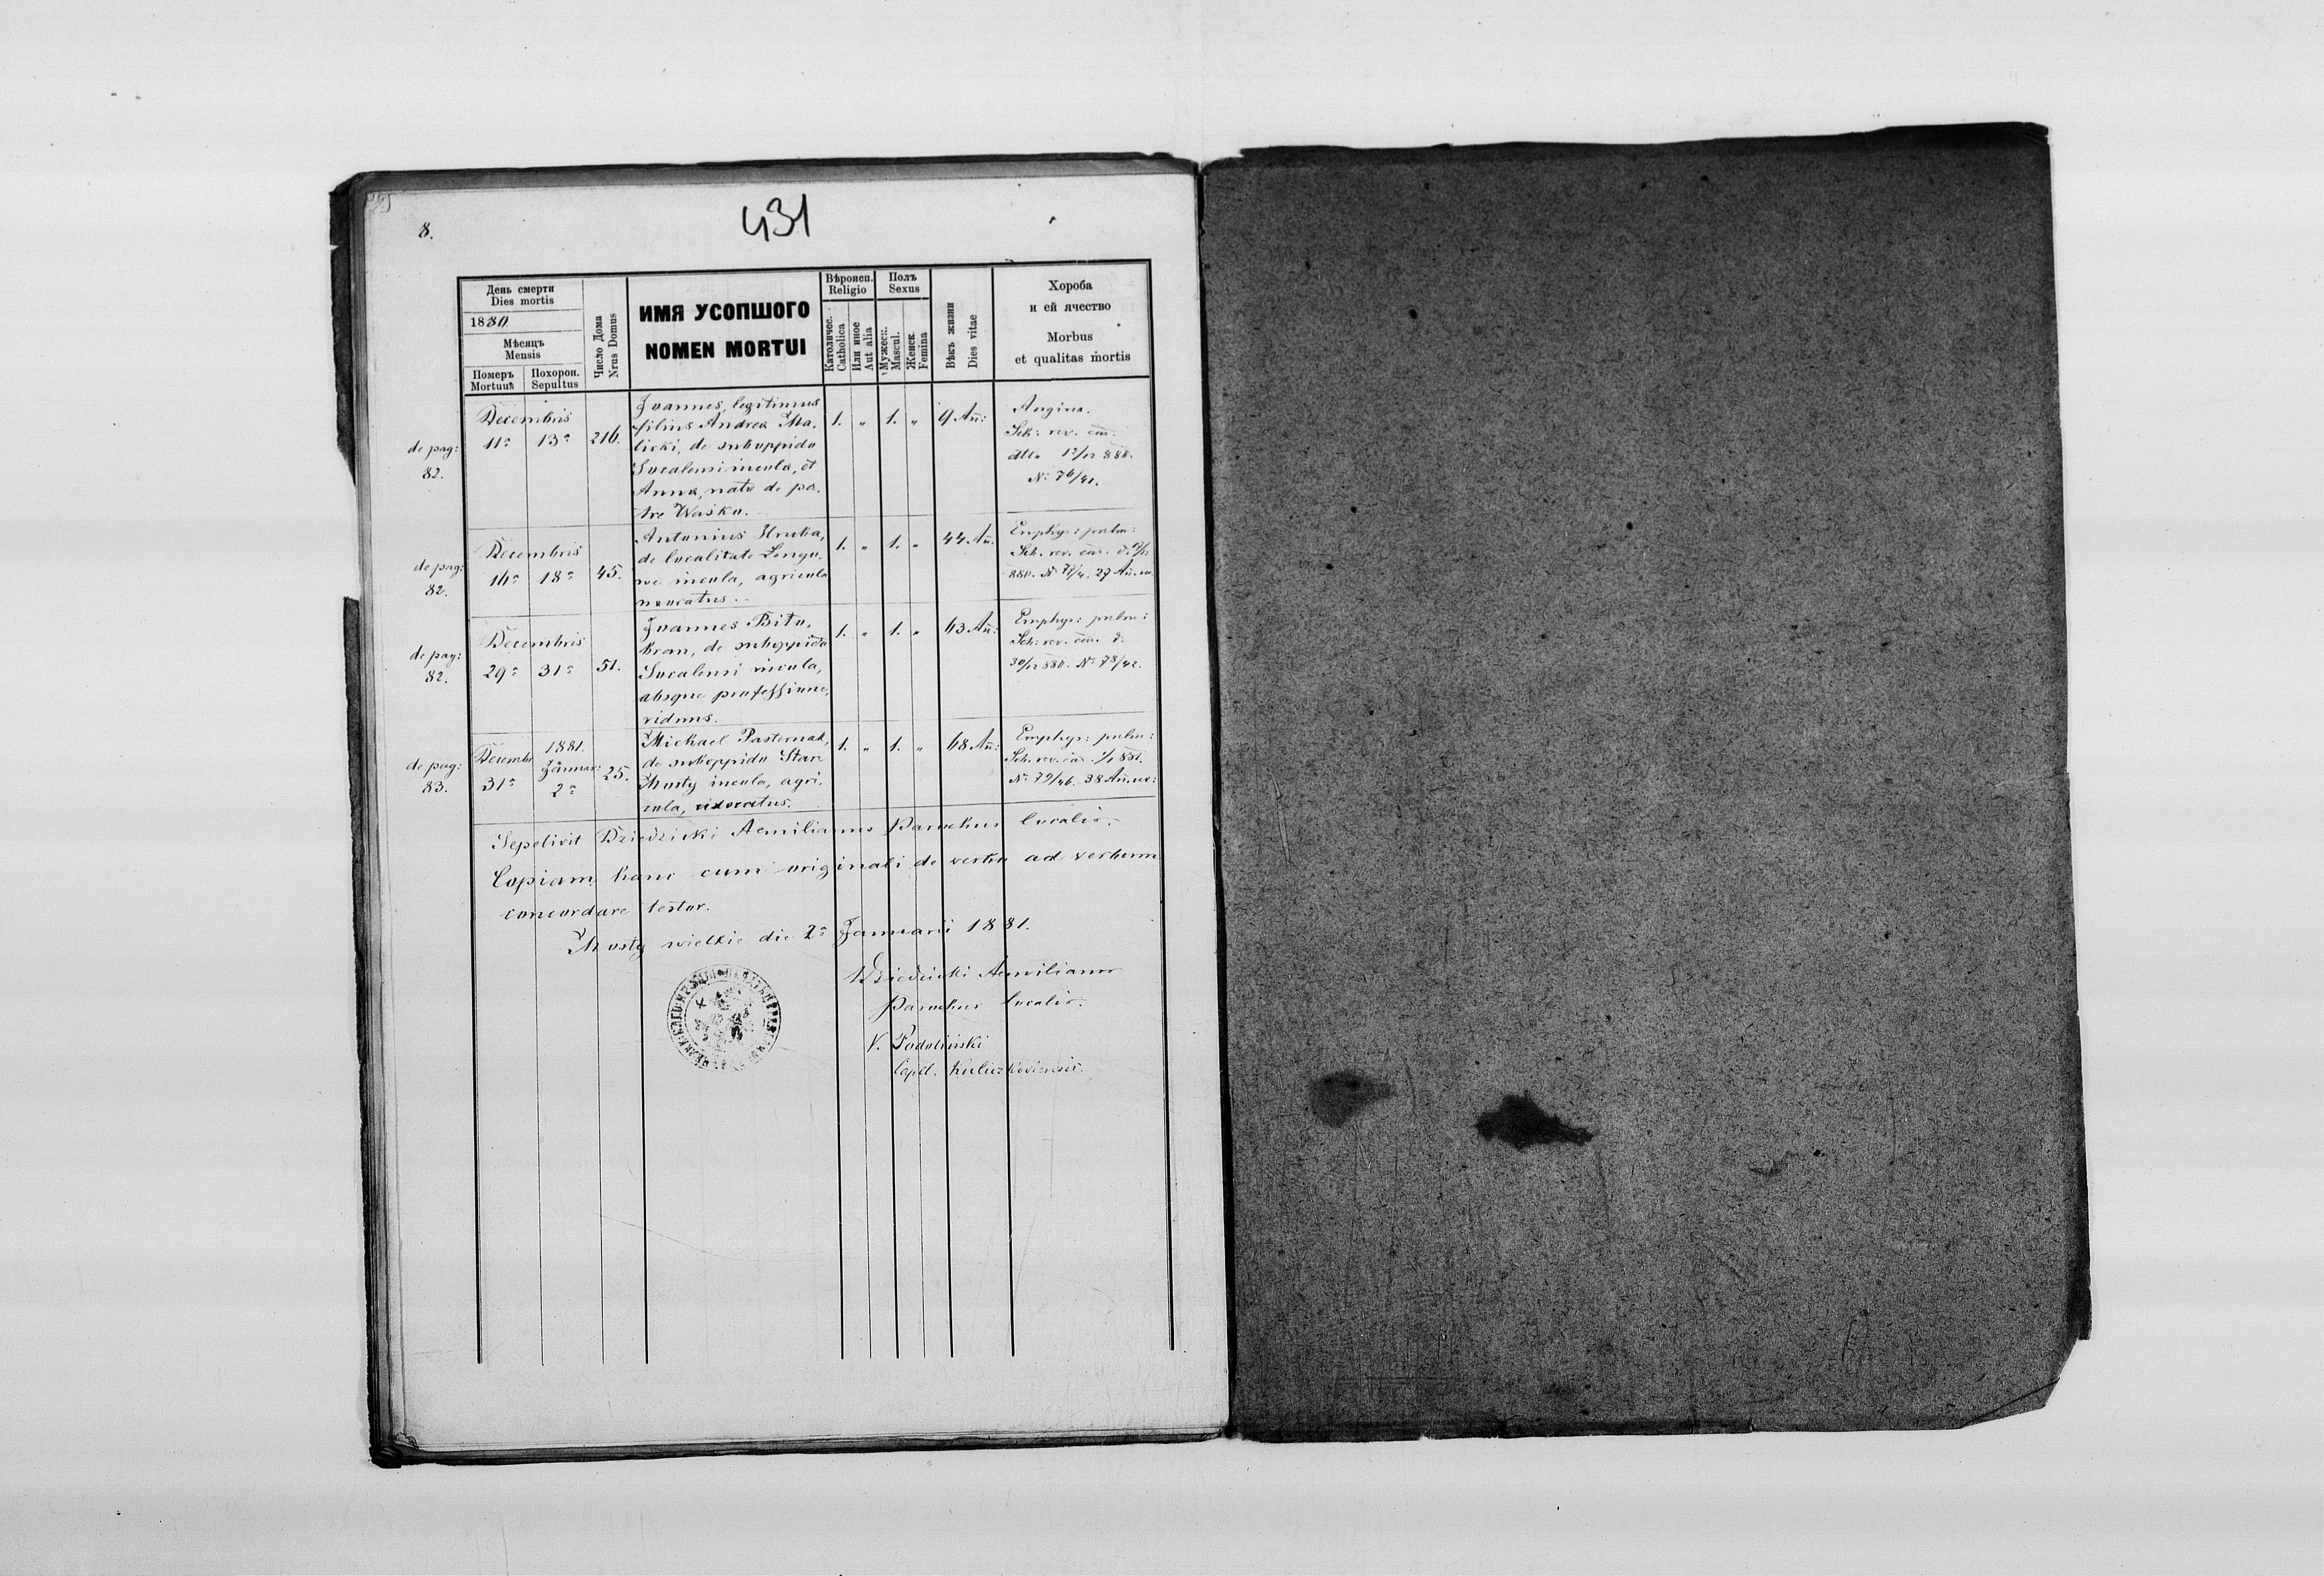 8.
431
День смерти
Dies mortis
1880
Мѣсяцъ
Mensis
Померъ
Mortuus
Похорон.
Sepultus
Число Дома
Nrus Domus
ИМЯ УСОПШОГО
NOMEN MORTUI
Вѣроисп.
Religio
Католичес.
Catholica
Или иное
Aut alia
Полъ
Sexus
Мужеск.
Mascul.
Женск.
Femina
Вѣкъ жизни
Dies vitae
Хороба
и ей ячество
Morbus
et qualitas mortis
de pag:
82.
Decembris
11a 13a 216.
Joannes, legitimus
filius Andrea Ma-
licki, de suboppido
Socalensi incola, et
Anna, nata de pa-
tre Waśko.
1. „ 1. „ 9 An:
Angina.
Sch: rev. cad:
dtto 12/12 880.
N: 76/41.
de pag:
82.
Decembris
16a 18a 45.
Antonius Hruba,
de localitate Longo-
we incola, agricola
uxoratus.
1. „ 1. „ 44 An.
Emphys: pulm:
Sch. rev. cad. d.
880. N 27 An. ux.
de pag:
82.
Decembris
29a 31a 51.
Joannes Bito-
bran, de suboppido
Socalensi incola,
absque professione,
viduus.
1. „ 1. „ 63 An:
Emphys: pulm:
Sch: rev. cad. d.
30/12 880. N: 78/42.
de pag:
83.
Decemb
31a
1881.
Januar:
2a
25.
Michael Pasternak,
de suboppido Stare
Mosty incola, agri-
cola, uxoratus.
1. „ 1. „ 68 An:
Emphys: pulm:
Sch. rev. cad 1/1 881.
N: 79/46. 38 An. ux:
Sepelivit Dziedzicki Aemilianus Parochus localis.
Copiam hanc cum originali de verbo ad verbum
concordare testor.
Mosty wielkie die 2a Januarii 1881.
Dziedzicki Aemilianus
Parochus localis.
V. Podoliński